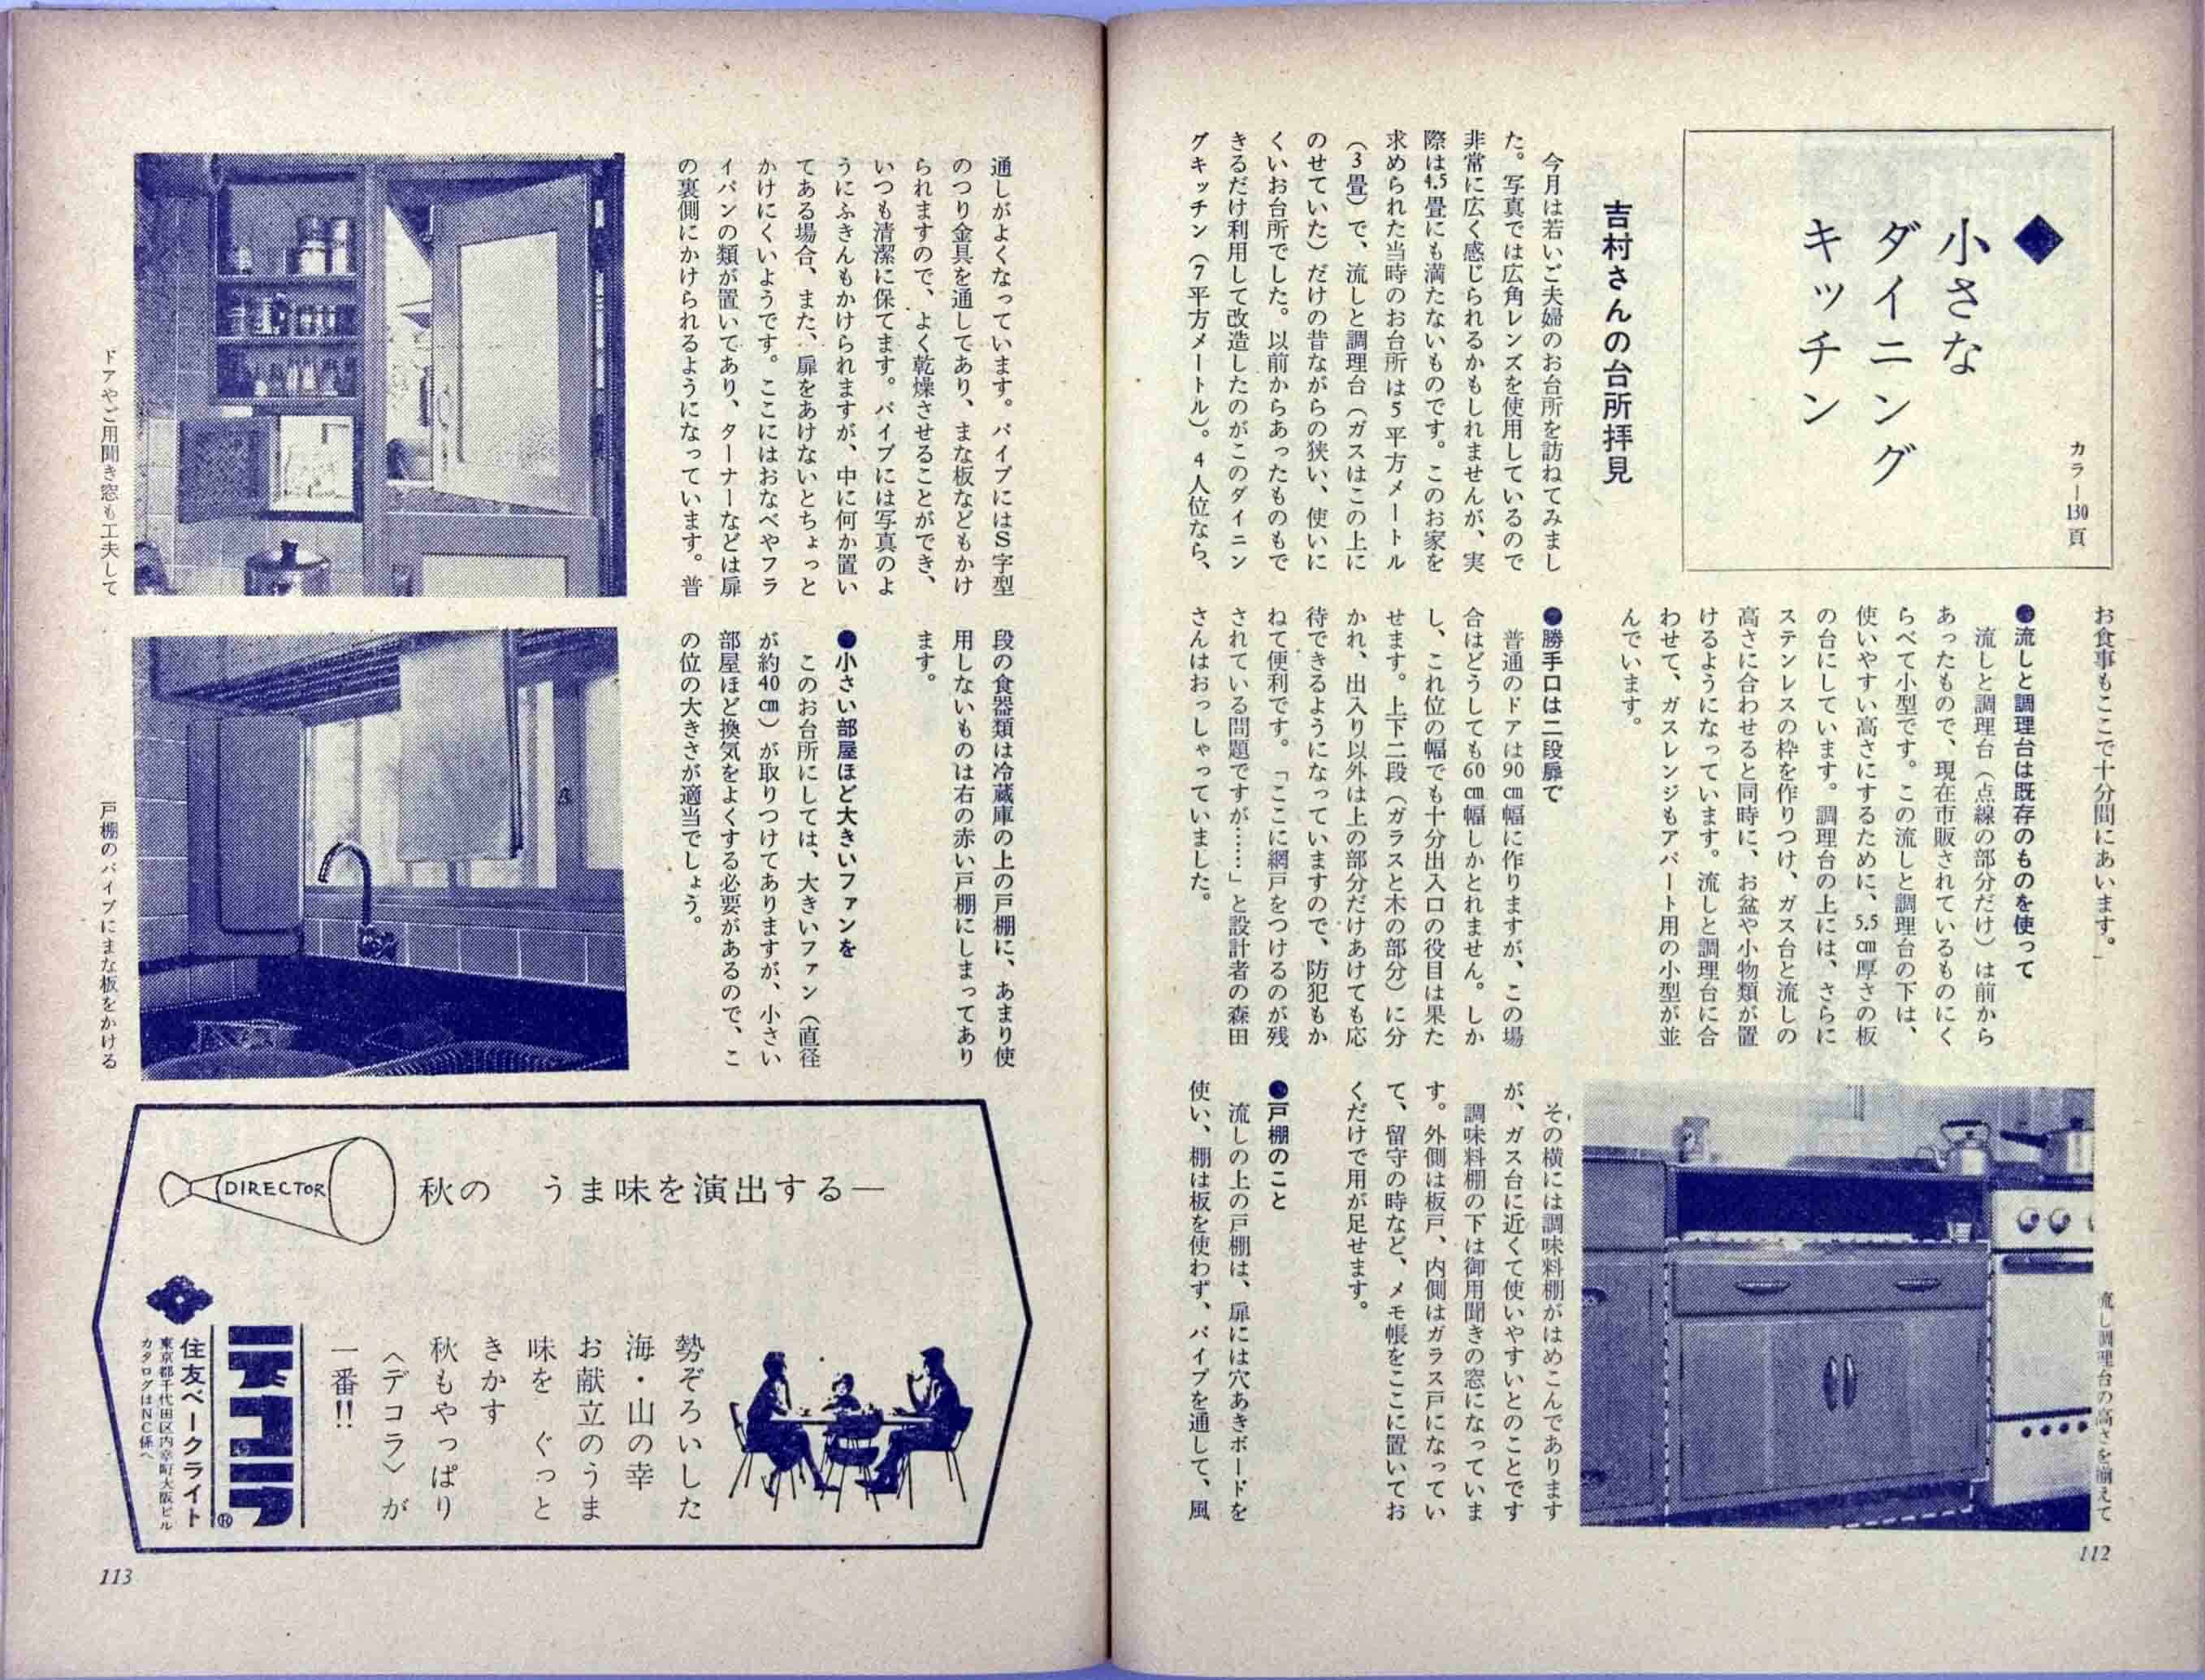 カラー130頁
◆
小さな
ダイニング
キッチン
吉村さんの台所拝見
今月は若いご夫婦のお台所を訪ねてみまし
た。写真では広角レンズを使用しているので
非常に広く感じられるかもしれませんが、実
際は4.5畳にも満たないものです。このお家を
求められた当時のお台所は5平方メートル
(3畳)で、流しと調理台(ガスはこの上に
のせていた)だけの昔ながらの狭い、使いに
くいお台所でした。以前からあったものもで
きるだけ利用して改造したのがこのダイニン
グキッチン(7平方メートル)。4人位なら、
お食事もここで十分間にあいます。
●流しと調理台は既存のものを使って
流しと調理台(点線の部分だけ)は前から
あったもので、現在市販されているものにく
らべて小型です。この流しと調理台の下は、
使いやすい高さにするために、5.5cm厚さの板
の台にしています。調理台の上には、さらに
ステンレスの枠を作りつけ、ガス台と流しの
高さに合わせると同時に、お盆や小物類が置
けるようになっています。流しと調理台に合
わせて、ガスレンジもアパート用の小型が並
んでいます。
●勝手口は二段扉で
普通のドアは90cm幅に作りますが、この場
合はどうしても60cm幅しかとれません。しか
し、これ位の幅でも十分出入口の役目は果た
せます。上下二段(ガラスと木の部分)に分
かれ、出入り以外は上の部分だけあけても応
待できるようになっていますので、防犯もか
ねて便利です。「ここに網戸をつけるのが残
されている問題ですが……」と設計者の森田
さんはおっしゃっていました。
流し調理台の高さを揃えて
その横には調味料棚がはめこんであります
が、ガス台に近くて使いやすいとのことです
調味料棚の下は御用聞きの窓になっていま
す。外側は板戸、内側はガラス戸になってい
て、留守の時など、メモ帳をここに置いてお
くだけで用が足せます。
●戸棚のこと
流しの上の戸棚は、扉には穴あきボードを
使い、棚は板を使わず、パイプを通して、風
112
通しがよくなっています。パイプにはS字型
のつり金具を通してあり、まな板などもかけ
られますので、よく乾燥させることができ、
いつも清潔に保てます。パイプには写真のよ
うにふきんもかけられますが、中に何か置い
てある場合、また、扉をあけないとちょっと
かけにくいようです。ここにはおなべやフラ
イパンの類が置いてあり、ターナーなどは扉
の裏側にかけられるようになっています。普
段の食器類は冷蔵庫の上の戸棚に、あまり使
用しないものは右の赤い戸棚にしまってあり
ます。
●小さい部屋ほど大きいファンを
このお台所にしては、大きいファン(直径
が約40cm)が取りつけてありますが、小さい
部屋ほど換気をよくする必要があるので、こ
の位の大きさが適当でしょう。
ドアやご用聞き窓も工夫して
戸棚のパイプにまな板をかける
DIRECTOR
秋の うま味を演出する―
勢ぞろいした
海・山の幸
お献立のうま
味を ぐっと
きかす
秋もやっぱり
〈デコラ〉が
一番!!
デコラ®
住友ベークライト
東京都千代田区内幸町大阪ビル
カタログはNC係へ
113